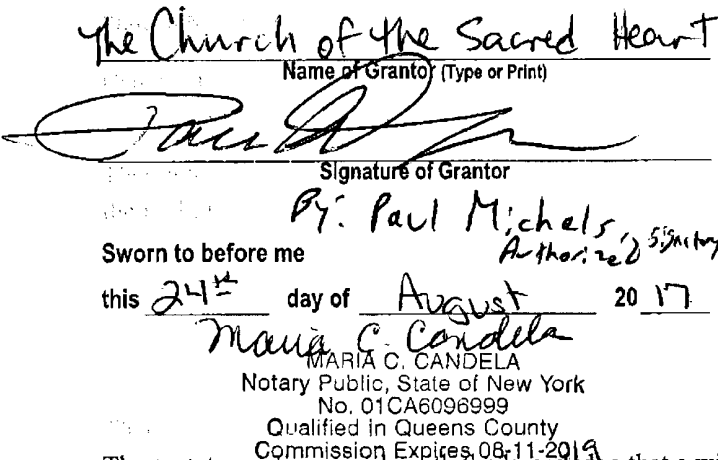 The Church of the Sacred Heart
Name of Grantor (Type or Print)
Signature of Grantor
By: Paul Michels,
Authorized Signatory
Sworn to before me
this 24th day of August 20 17
Maria C. Candela
MARIA C. CANDELA
Notary Public, State of New York
No. 01CA6096999
Qualified in Queens County
Commission Expires 08-11-2019